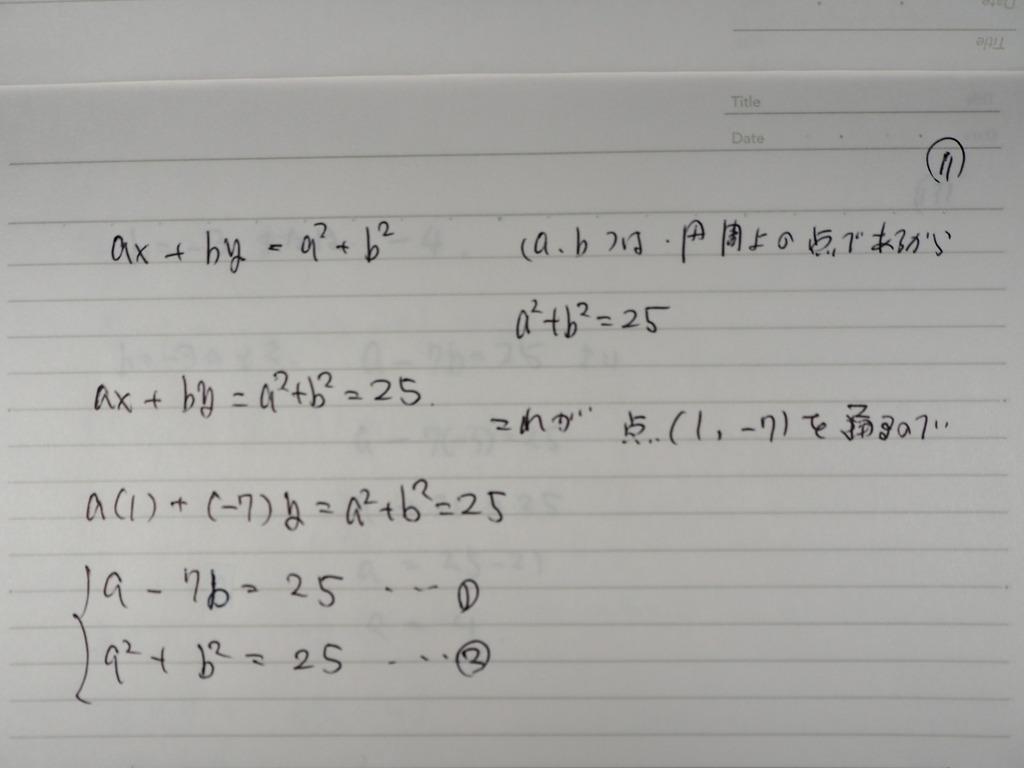 Title
Date
⑪
ax + by = a² + b² (a, b)は、円周上の点であるから
a² + b² = 25
ax + by = a² + b² = 25.
これが 点 (1, -7) を通るので
a(1) + (-7)y = a² + b² = 25
a - 7b = 25 ・・・ ①
a² + b² = 25 ・・・ ②